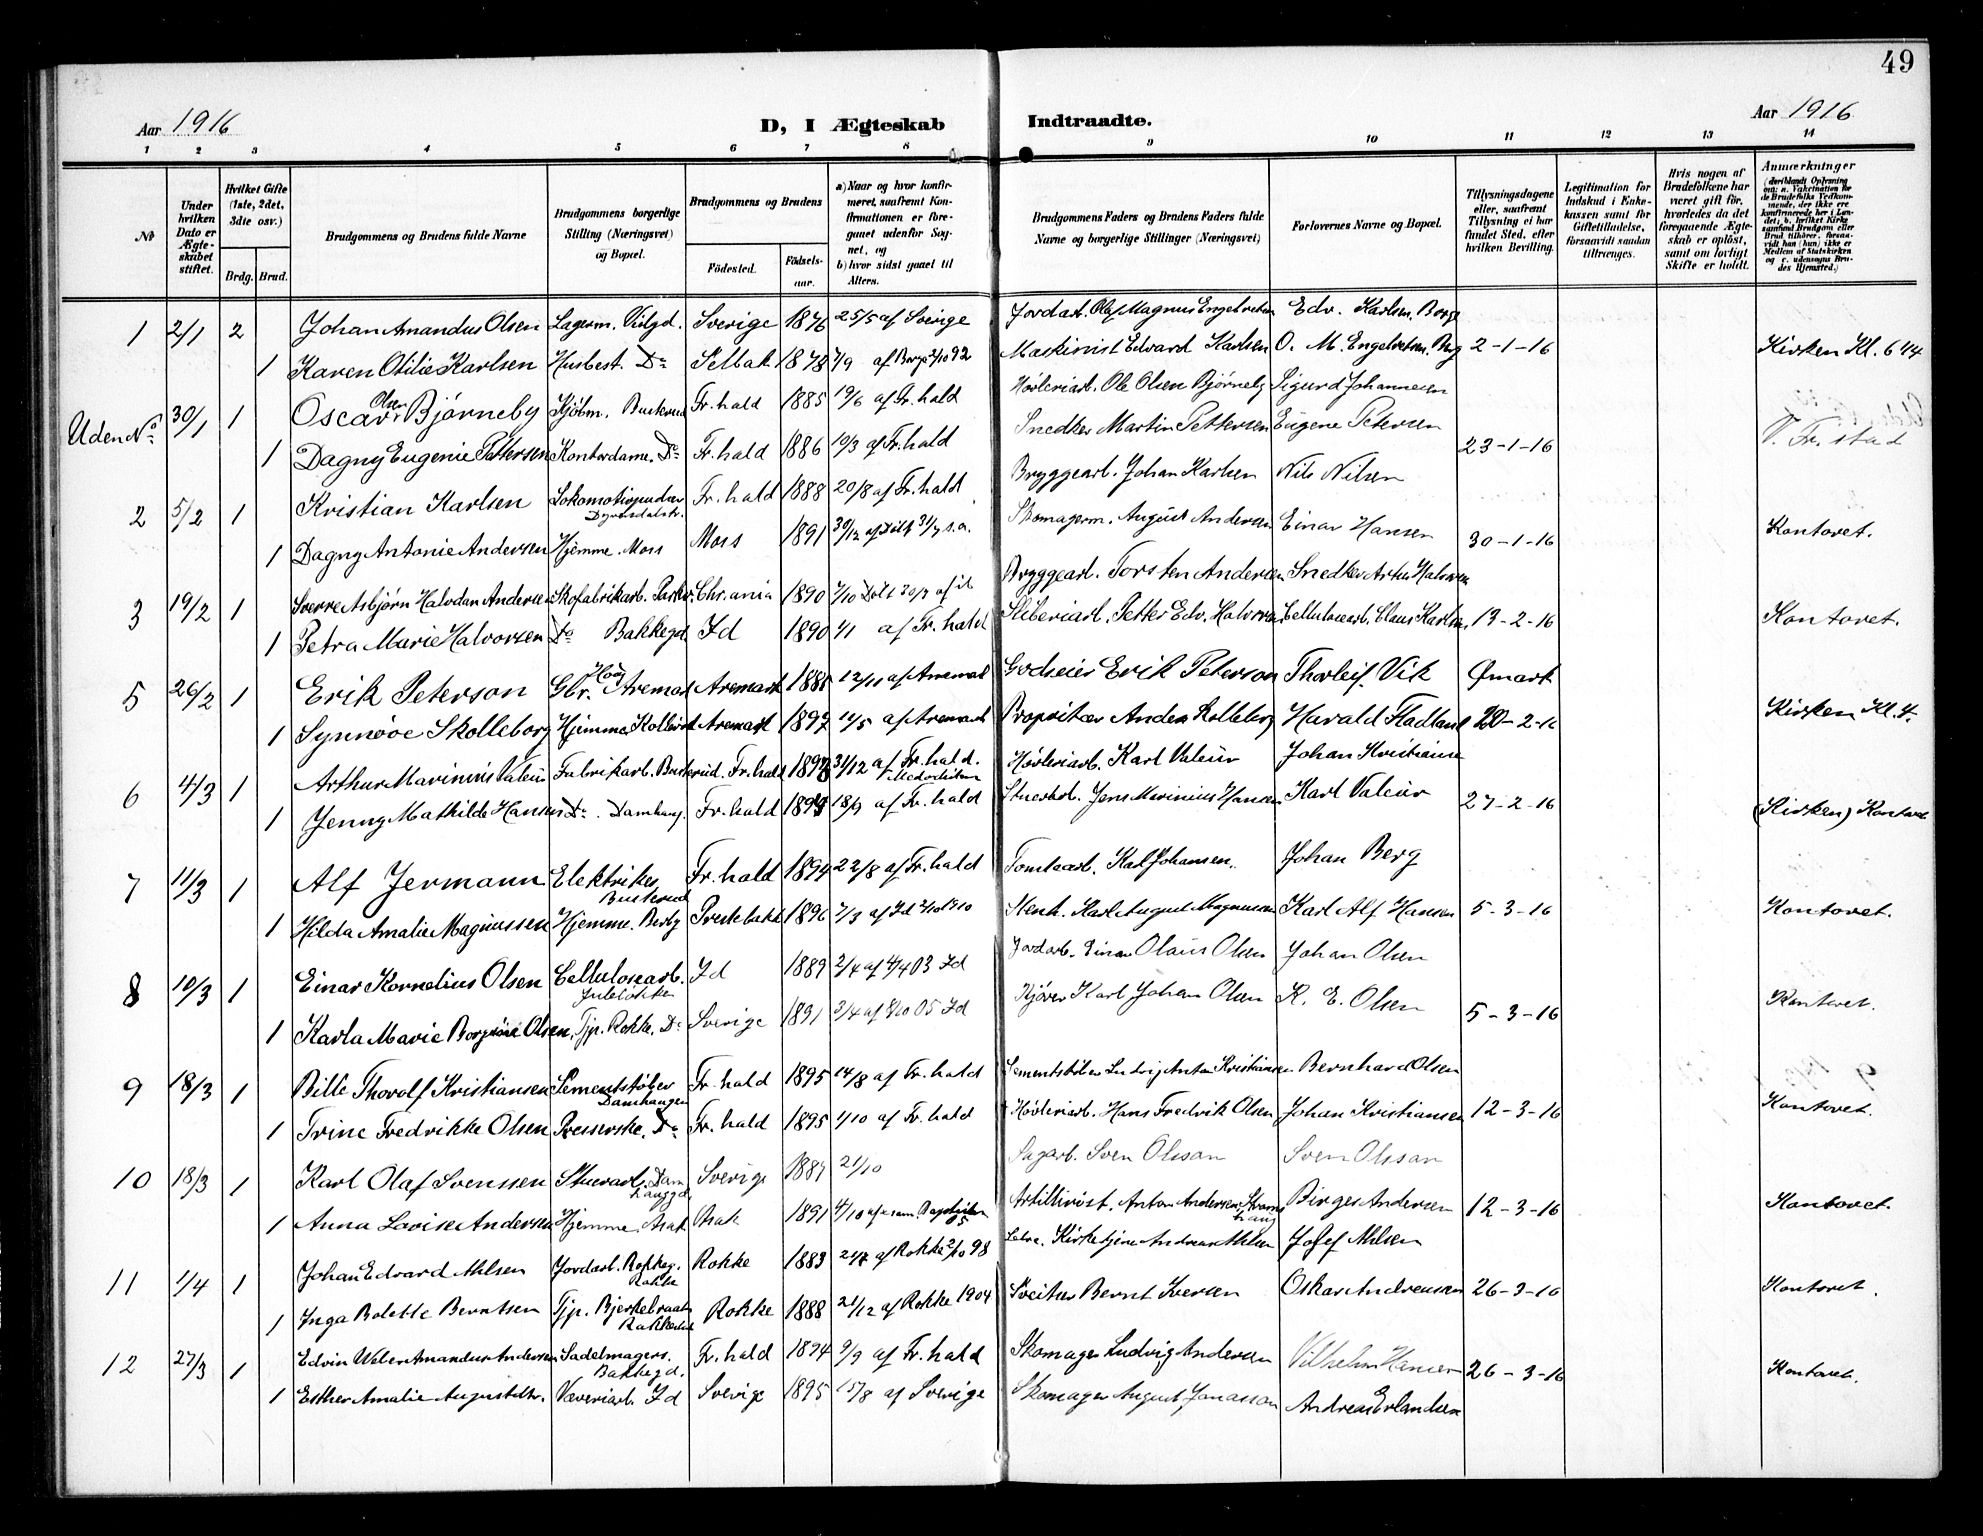 49
Aar 1916
D, I Ægteskab Indtraadte.
Aar 1916
1 2 3 4 5 6 7 8 9 10 11 12 13 14
No
Under hvilken Dato er Ægteskabet stiftet.
Hvilket Gifte (1ste, 2det, 3die osv.)
Brdg. Brud.
Brudgommens og Brudens fulde Navne
Brudgommens borgerlige Stilling (Næringsvei) og Bopæl.
Brudgommens og Brudens
Födested. Födselsaar.
a) Naar og hvor konfirmeret, saafremt Konfirmationen er foregaaet udenfor Sognet, og
b) hvor sidst gaaet til Alters.
Brudgommens Faders og Brudens Faders fulde Navne og borgerlige Stillinger (Næringsvei)
Forlovernes Navne og Bopæl.
Tillysningsdagene eller, saafremt Tillysning ei har fundet Sted, efter hvilken Bevilling.
Legitimation for Indskud i Enkekassen samt for Giftetilladelse, forsaavidt saadan tiltrænges.
Hvis nogen af Brudefolkene har været gift før, hvorledes da det foregaaende Ægteskab er opløst, samt om lovligt Skifte er holdt.
Anmærkninger
1 2/1 2 Johan Amandus Olsen Lagerm. Sverige 1876 25/5 af Sverige Jordarb. Olaf Magnus Engebretsen Edv. Karlsen, Berge
1 Karen Otilie Karlsen Husbest. Do Selbak 1878 7/9 af Berge 2/10 92 Maskinist Edvard Karlsen O. M. Engebretsen, Berg 2-1-16 Kirken Kl. 6 1/4
Uden No 30/1 1 Oscar Olsen Bjørneby Kjøbm. Buskerud Fr.hald 1885 19/6 af Fr.hald Høvleriarb. Ole Olsen Bjørneby Sigurd Johannesen
1 Dagny Eugenie Pettersen Kontordame. Do Fr.hald 1886 10/3 af Fr.hald Snedker Martin Pettersen Eugene Petersen 23-1-16 V. Fr.stad
2 5/2 1 Kristian Karlsen Lokomotivpudser Dyrendalstr. Fr.hald 1888 20/8 af Fr.hald Bryggearb. Johan Karlsen Nils Nilsen
1 Dagny Antonie Andersen Hjemme. Moss Moss 1891 30/12 Skomagerm. August Andersen Einar Hansen 30-1-16 Kontoret.
3 19/2 1 Sverre Asbjørn Halvdan Andersen Skofabrikarb. Chr.ania 1890 Bryggearb. Torsten Andersen Snedker
1 Petra Marie Halvorsen Do Bakkegd. Id 1890 4/1 af Fr.hald Sliberiarb. Petter Edv. Halvorsen Cellulosearb. Claus Karlsen, 13-2-16 Kontoret.
5 26/2 1 Erik Peterson Gbr. Aremark Aremark 1888 12/11 af Aremark Godseier Erik Peterson Thorleif Vik Ømark
1 Synnøve Skolleborg Hjemme, Aremark 1897 14/5 af Aremark Proprietær Anders Kolleborg Harald Fladland 20-2-16 Kirken Kl. 4.
6 4/3 1 Arthur Marinius Valeur Fabrikarb. Buskerud. Fr.hald 31/12 af Fr.hald. Høvleriarb. Karl Valeur Johan Kristiansen
1 Jenny Mathilde Hansen Do. Damhaug. Fr.hald 18/9 af Fr.hald Stuerarb. Jens Marinius Hansen Karl Valeur 27-2-16 (Kirken) Kontoret
7 11/3 1 Alf Jermann Elektriker Buskerud Fr.hald 1894 22/8 af Fr.hald Tomtearb. Karl Johansen. Johan Berg
1 Hilda Amalie Magnussen Hjemme. Berby Prestebakke 1896 7/3 af Id 2/10 1910 Karl August Magnussen Karl Alf Hansen 5-3-16 Kontoret.
8 10/3 1 Einar Kornelius Olsen Cellulosearb. Juleløkken Id 1889 2/4 af 4/4 03 Id Jordarb. Einar Olaus Olsen Johan Olsen
1 Karla Marie Olsen, Tjp. Rokke. Do Sverige 1891 2/4 af 8/10 05 Id Kjører Karl Johan Olsen K. E. Olsen 5-3-16 Kontoret.
9 18/3 1 Bille Thorolf Kristiansen Sementstøber Damhaugen Fr.hald 1895 14/8 af Fr.hald Sementstøber Ludvig Anton Kristiansen Bernhard Olsen
1 Trine Fredrikke Olsen Presserske. Do Fr.hald 1895 4/10 af Fr.hald Høvleriarb. Hans Fredrik Olsen Johan Kristiansen 12-3-16 Kontoret.
10 18/3 1 Karl Olaf Svenssen Stuerarb. Damhauggd. Sverige 1889 21/10 Sagarb. Sven Olssan Sven Olssan
1 Anna Lovise Andersen Hjemme. Asak Asak 1891 4/10 Artillirist. Anton Andersen, Birger Andersen 12-3-16 Kontoret.
11 1/4 1 Johan Edvard Ahlsen Jordarb. Rokkeg. Rokke Rokke 1883 af Rokke 2/10 98 Kirketjener Andreas Ahlsen Josef Ahlsen
1 Inga Bolette Berntsen Tjp. Bjerkebraaten Rokke 1888 21/12 af Rokke 1904 Sveitser Bernt Iversen Oskar Andreassen 26-3-16 Kontoret.
12 27/3 1 Edvin Weber Amandus Andersen Sadelmagers. Bakkegd. Fr.hald 1894 9/9 af Fr.hald Skomager Ludvig Andersen Vilhelm Hansen 26-3-16
1 Esther Amalie Augustdtr. Væveriarb. Id Sverige 1895 15/8 af Sverige Skomager August Jonasson Andreas Erlandsen Kontoret.